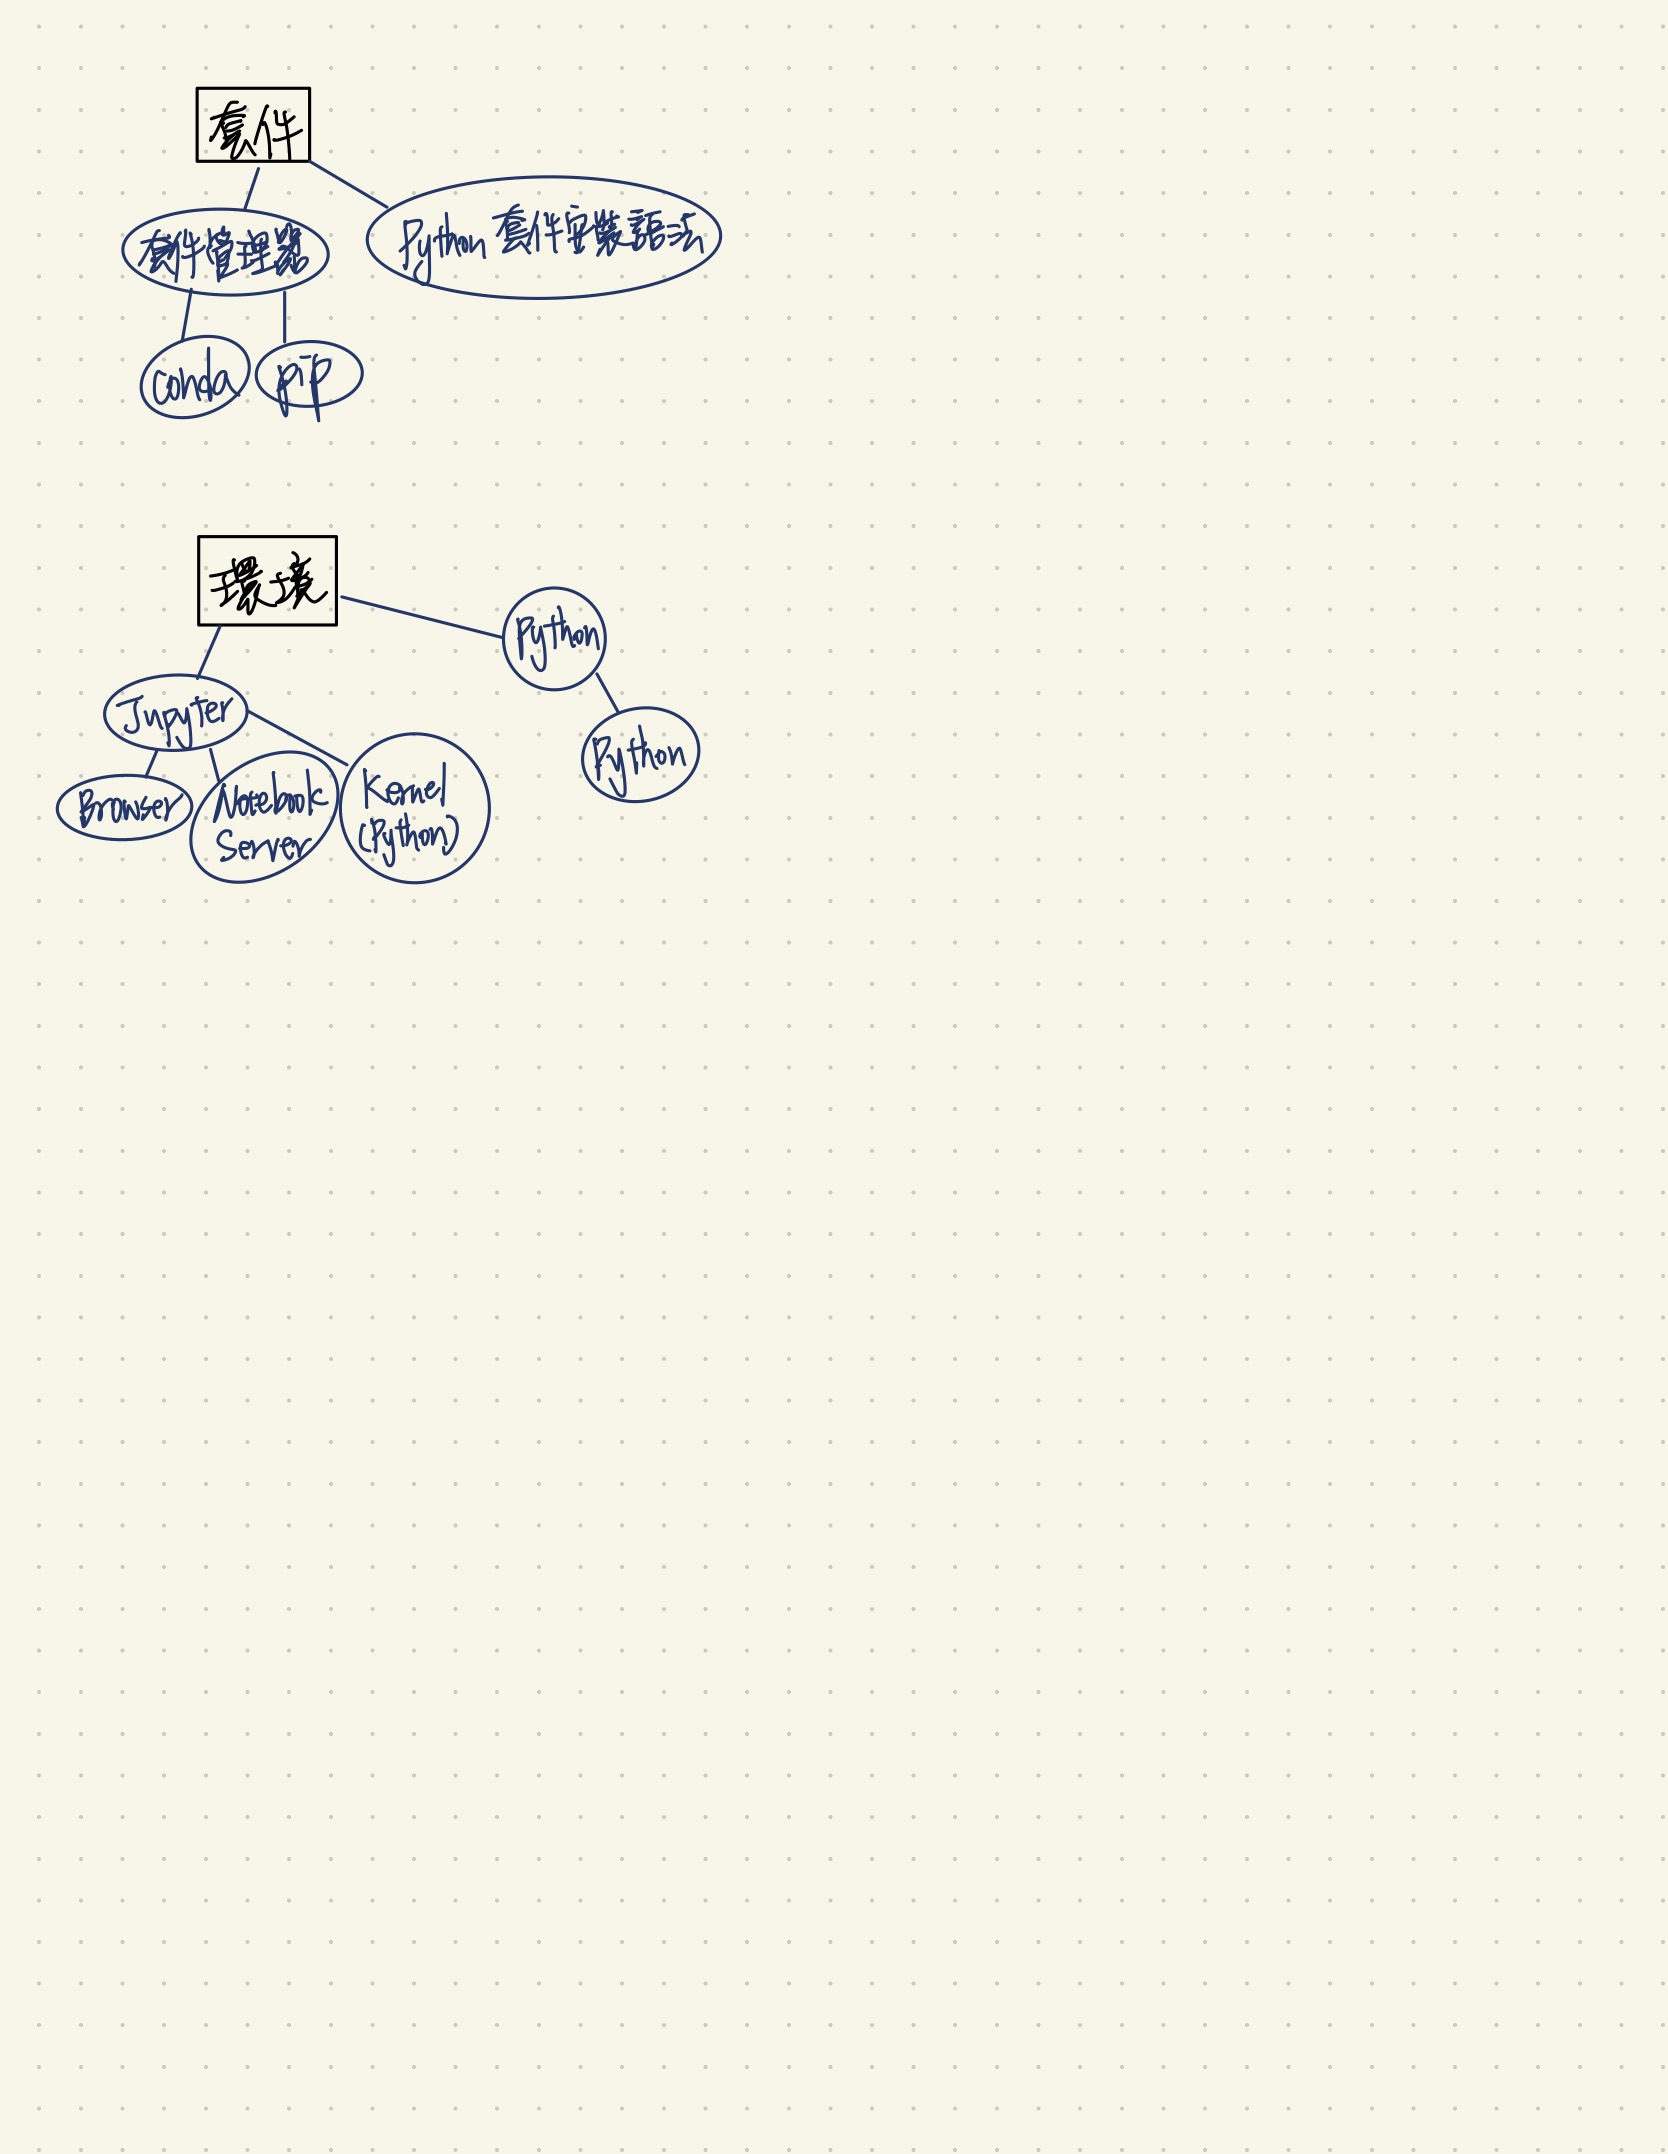 套件
套件管理器
Python 套件安裝語法
conda
pip
環境
Python
Jupyter
Python
Browser
Notebook
Server
Kernel
(Python)